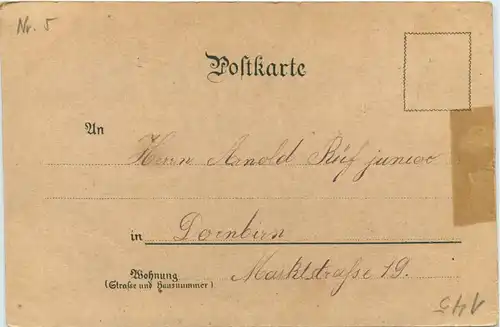 Nr. 5
Postkarte
An
Herrn Arnold Rüf junior
in Dornbirn
Wohnung Marktstraße 19.
(Straße und Hausnummer)
145